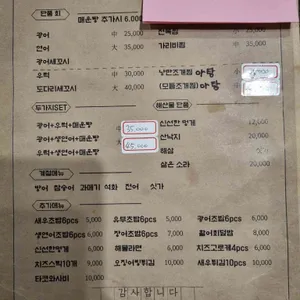 단품 회
매운탕 추가시 6,000
광어 中 25,000
연어 大 35,000
광어세꼬시
우럭 中 30,000
도다리세꼬시 大 40,000
35,000
25,000
가리비찜
낙만조개찜 아탕
(모듬조개찜) 아탕
두가지SET
광어+우럭+매운탕
광어+생연어+매운탕
우럭+생연어+매운탕
35,000
45,000
해산물 단품
신선한 멍게 12,000
산낙지 20,000
해삼 싯가
삶은 소라 20,000
계절메뉴
방어 참숭어 과메기 석화 전어 싯가
추가메뉴
새우초밥6pcs 5,000
유부초밥6pcs 5,000
광어초밥6pcs 6,000
생연어초밥6pcs 6,000
장어초밥6pcs 7,000
8,000
신선한멍게 6,000
해물라면 6,000
치즈고로케4pcs 6,000
치즈스틱10개 9,000
오징어방튀김 10,000
새우튀김10pcs 30,000
타코와사비 10,000
감사합니다